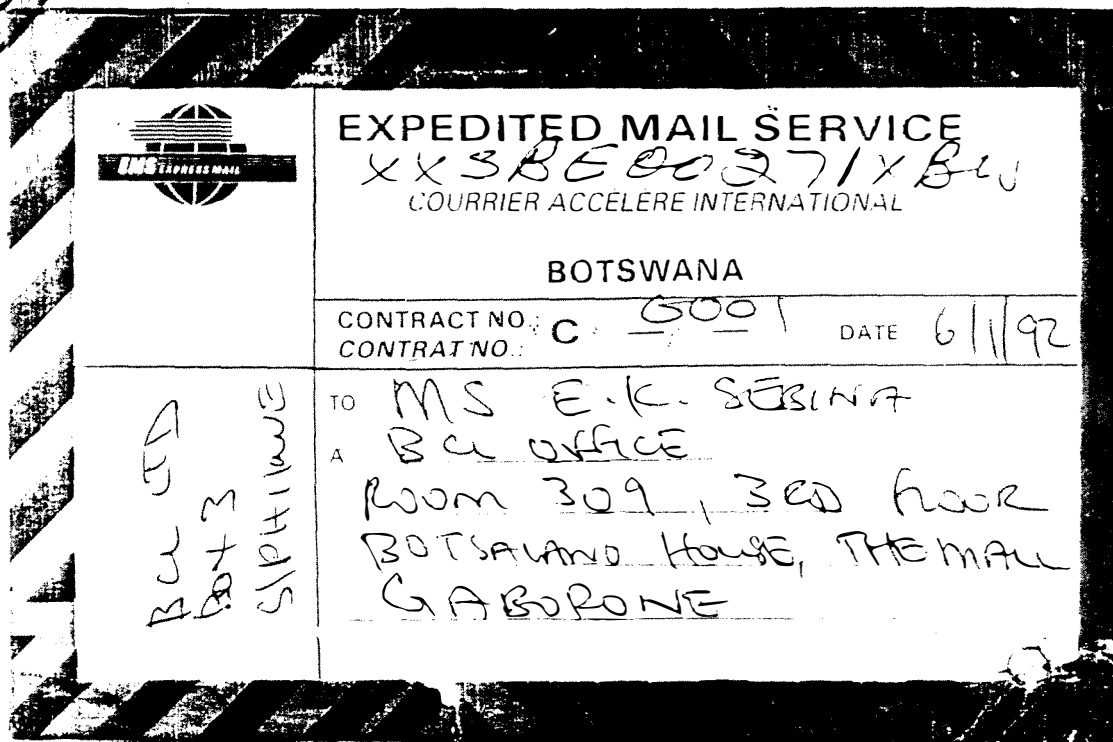 EMS EXPRESS MAIL
EXPEDITED MAIL SERVICE
XXSBE00271XBW
COURRIER ACCÉLÈRE INTERNATIONAL
BOTSWANA
CONTRACT NO.: C G001 DATE 6/1/92
CONTRAT NO.:
TO MS E.K. SEBINA
A BCL OFFICE
ROOM 309, 3RD FLOOR
BOTSALANO HOUSE, THE MALL
GABORONE
BCL LTD
BOX 3
S/PHIKWE